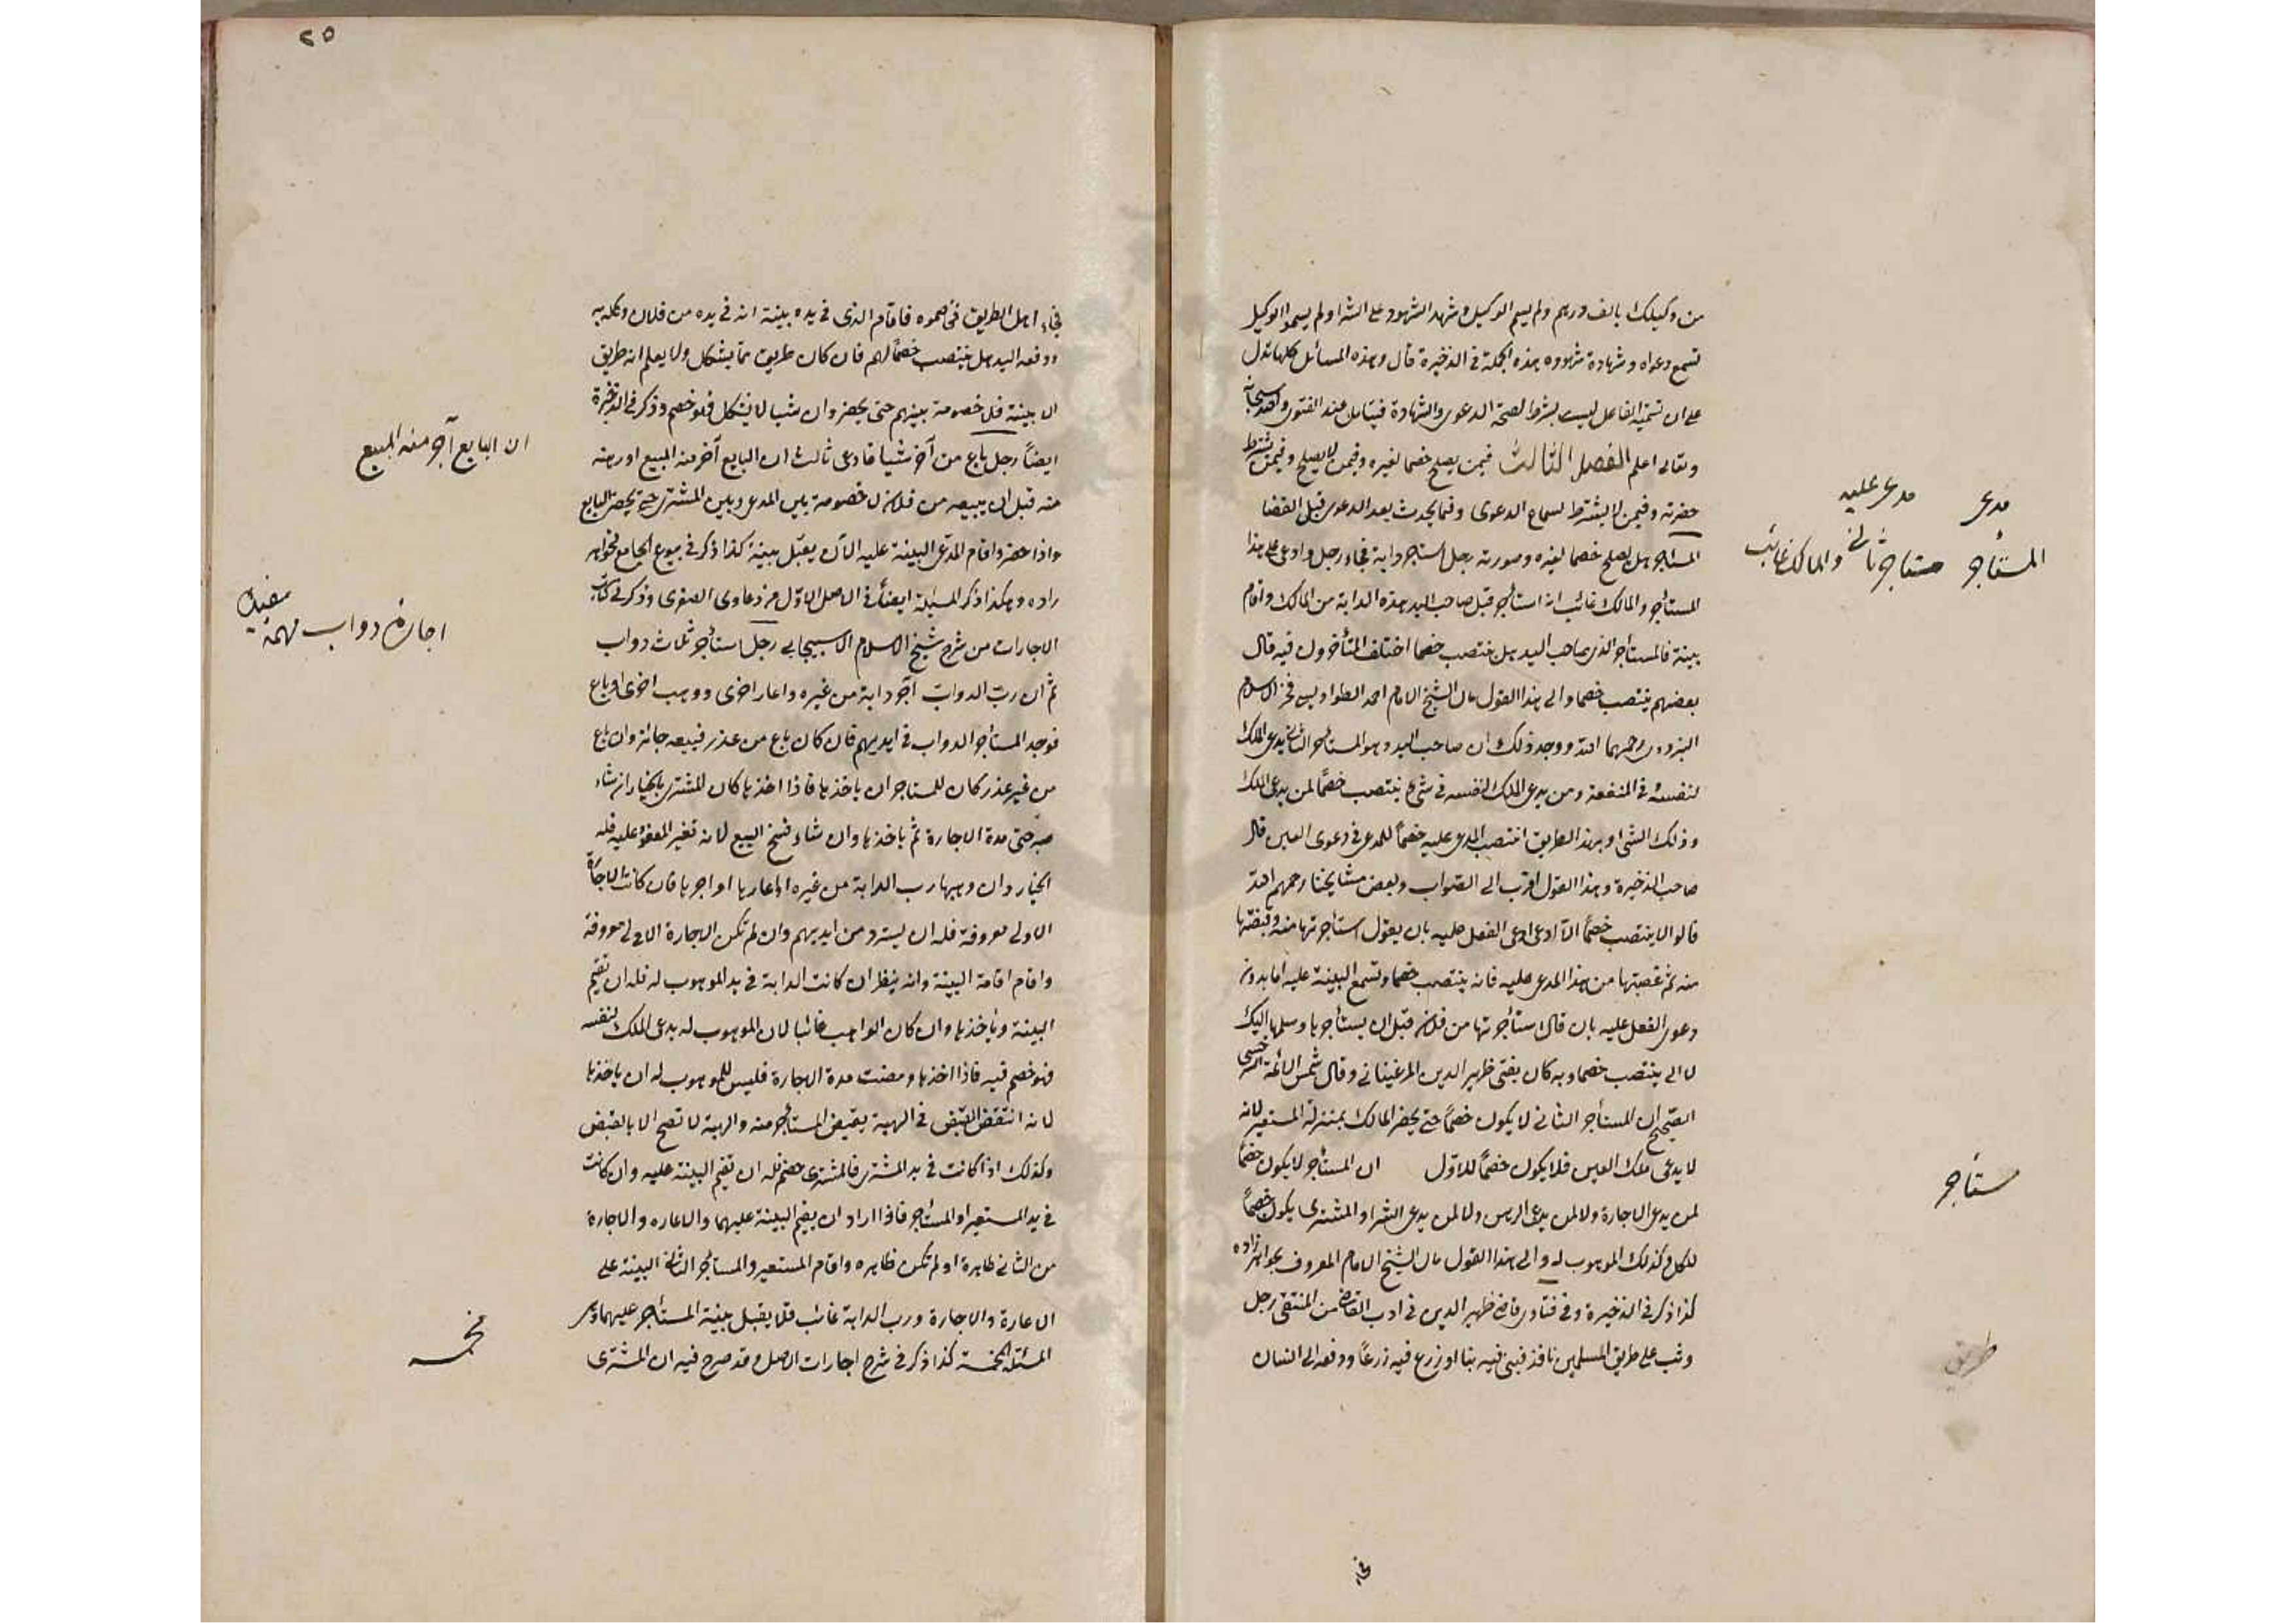 من وكيلك بالف درهم ولم يسم الوكيل وشهد الشهود على الشرا ولم يسموا الوكيل
تسمع دعواه وشهادة شهوده هذه الجملة في الذخيرة قال وهذه المسائل كلها تدل
على ان تسمية الفاعل ليست بشرط لصحة الدعوى والشهادة فيتأمل عند الفتوى والله سبحانه
وتعالى اعلم الفصل الثالث فيمن يصلح خصما لغيره وفيمن لا يصلح وفيمن يشترط
حضرته وفيمن لا يشترط لسماع الدعوى وفيما يحدث بعد الدعوى قبل القضا
المستأجر هل يصلح خصما لغيره وصورته رجل استأجر دابة فجاء رجل وادعى على هذا
المستأجر والمالك غائب انه استأجر قبل صاحب اليد هذه الدابة من المالك واقام
بينة فالمستأجر الذي صاحب اليد هل ينتصب خصما اختلف المتأخرون فيه قال
بعضهم ينتصب خصما والى هذا القول مال الشيخ الامام احمد الطواويسي فخر الاسلام
البزدوى رحمهما الله ووجه ذلك ان صاحب اليد وهو المستأجر الثاني يدعى الملك
لنفسه في المنفعة ومن يدعى الملك لنفسه في شئ ينتصب خصما لمن يدعى الملك
وذلك الشئ وبهذا الطريق انتصب المدعى عليه خصما للمدعى في دعوى العين قال
صاحب الذخيرة وهذا القول اقرب الى الصواب وبعض مشايخنا رحمهم الله
قالوا لا ينتصب خصما الا اذا ادعى الفعل عليه بان يقول استأجرتها منه وقبضتها
منه ثم غصبتها من هذا المدعى عليه فانه ينتصب خصما وتسمع البينة عليه اما بدون
دعوى الفعل عليه بان قال استأجرتها من فلان قبل ان يستأجرها وسلمها اليك
لا ينتصب خصما وبه كان يفتى ظهير الدين المرغينانى وقال شمس الائمة السرخسى
الصحيح ان المستأجر الثانى لا يكون خصما حتى يحضر المالك بمنزلة المستعير لانه
لا يدعى ملك العين فلا يكون خصما للاول ان المستأجر لا يكون خصما
لمن يدعى الاجارة ولا لمن يدعى الرهن ولا لمن يدعى الشرا والمشترى يكون خصما
للكل وكذلك الموهوب له والى هذا القول مال الشيخ الامام المعروف بخواهر زاده
كذا ذكر في الذخيرة وفي فتاوى قاضى ظهير الدين في ادب القاضى من المنتقى رجل
وثب على طريق المسلمين نافذ فبنى فيه بنا او زرع فيه زرعا ودفعه الى انسان
فجاء
مدعى
مدعى عليه
المستأجر
مستاجر ثانى والمالك غائب
مستأجر
طريق
٢٥
فجاء اهل الطريق فخاصموه فاقام الذى في يده بينة انه في يده من فلان وكله به
ودفعه اليه هل ينتصب خصما لهم فان كان طريق مما يشكل ولا يعلم انه طريق
الا ببينة فلا خصومة بينهم حتى يحضر وان شيا لا يشكل فهو خصم وذكر في الذخيرة
ايضا رجل باع من آخر شيا فادعى ثالث ان البايع آجر منه المبيع او رهنه
منه قبل ان يبيعه من فلان لا خصومة بين المدعى وبين المشترى حتى يحضر البايع
واذا حضر واقام المدعى البينة عليه الآن يقبل بينة كذا ذكر في بيوع الجامع لخواهر
زاده وهكذا ذكر المسئلة ايضا في الاصل الاول من دعاوى الصغرى وذكر في كتاب
الاجارات من شرح شيخ الاسلام الاسبيجابى رجل استأجر ثلاث دواب
ثم ان رب الدواب آجر دابة من غيره واعار اخرى ووهب اخرى او باع
فوجد المستأجر الدواب في ايديهم فان كان باع من عذر فبيعه جائز وان باع
من غير عذر كان للمستاجر ان ياخذها فاذا اخذها كان للمشترى بالخيار ان شاء
صبر حتى مدة الاجارة ثم ياخذها وان شاء فسخ البيع لانه تغير المعقود عليه فله
الخيار وان وهبها رب الدابة من غيره او اعارها او اجرها فان كانت الاجارة
الاولى معروفة فله ان يسترد من ايديهم وان لم تكن الاجارة الاولى معروفة
واقام اقامة البينة وانه ينظر ان كانت الدابة في يد الموهوب له فله ان تقيم
البينة وياخذها وان كان الواهب غائبا لان الموهوب له يدعى الملك لنفسه
فهو خصم فيه فاذا اخذها ومضت مدة الاجارة فليس للموهوب له ان ياخذها
لانه انتقض القبض في الهبة بقبض المستأجر منه والهبة لا تصح الا بالقبض
وكذلك اذا كانت في يد المشترى فالمشترى خصم فله ان تقيم البينة عليه وان كانت
في يد المستعير او المستاجر فاذا اراد ان يقيم البينة عليهما والاعاره والاجارة
من الثانى ظاهرة او لم تكن ظاهره واقام المستعير والمستأجر الثانى البينة على
الاعارة والاجارة ورب الدابة غائب فلا يقبل بينة المستأجر عليهما
المسئلة المخمسة كذا ذكر في شرح اجارات الاصل وقد صرح فيه ان المشترى
ان البايع آجر منه المبيع
اجارة دواب مهمة